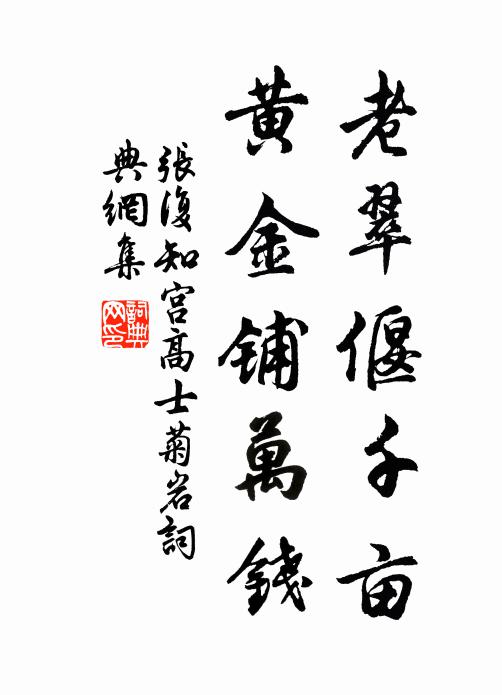 老翠偃千亩
黄金鋪萬錢
張復知宫高士菊岩詞
典網集
詞典
网印